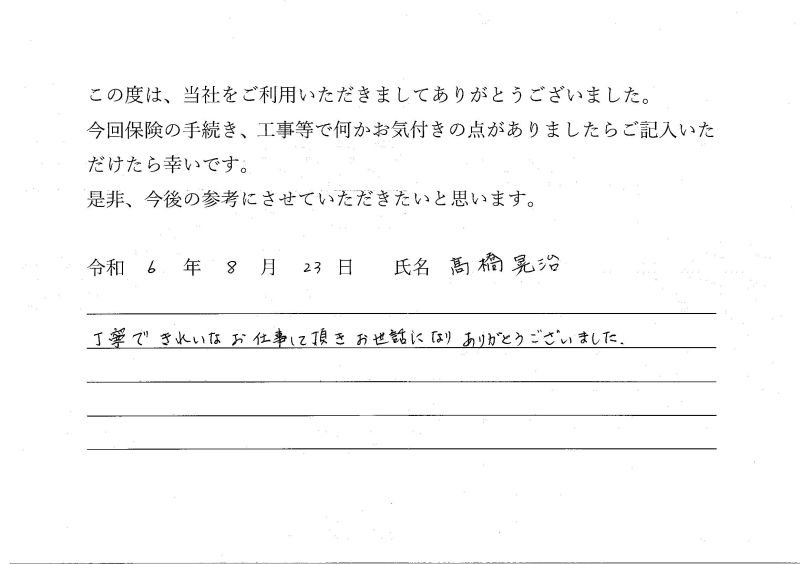 この度は、当社をご利用いただきましてありがとうございました。
今回保険の手続き、工事等で何かお気付きの点がありましたらご記入いた
だけたら幸いです。
是非、今後の参考にさせていただきたいと思います。
令和 6 年 8 月 23 日 氏名 髙橋晃治
丁寧できれいなお仕事して頂きお世話になりありがとうございました。